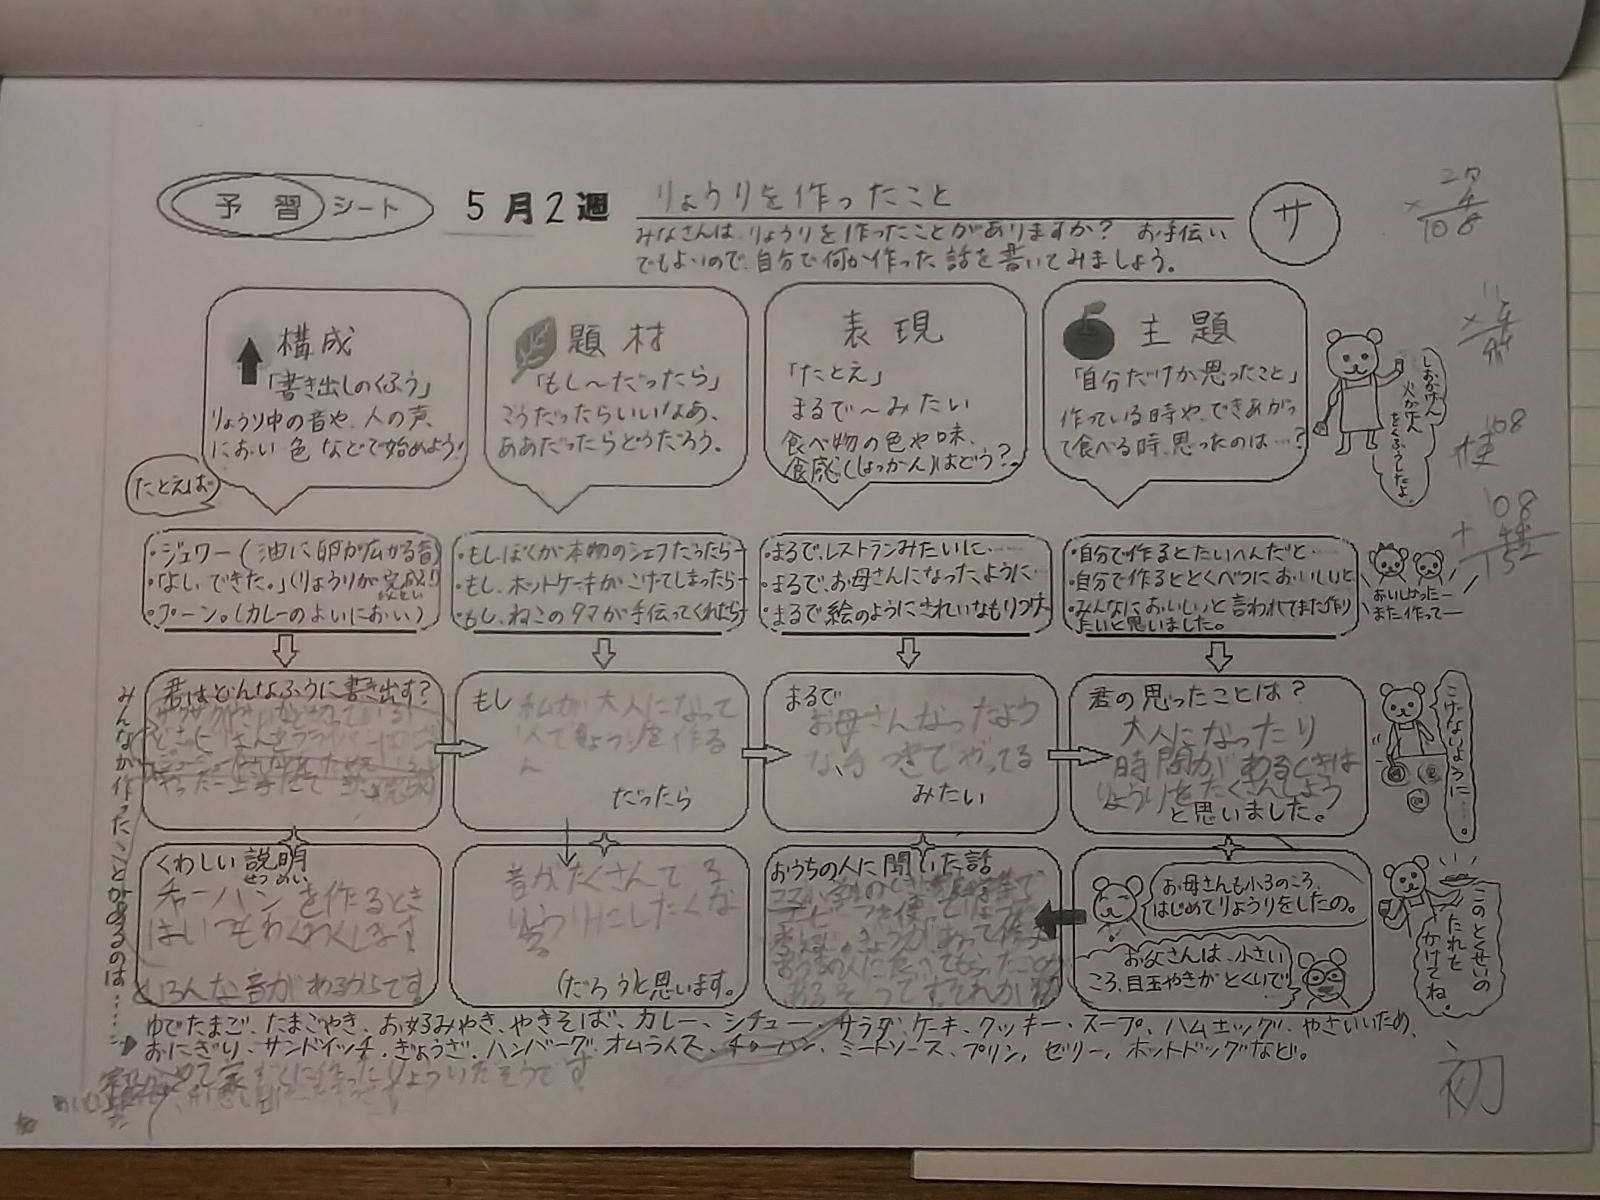 予習シート
5月2週
りょうりを作ったこと
サ
みなさんは、りょうりを作ったことがありますか? お手伝い
でもよいので、自分で何か作った話を書いてみましょう。
構成
「書き出しのくふう」
りょうり中の音や、人の声、
におい 色 などで始めよう!
題材
「もし〜だったら」
こうだったらいいなあ、
ああだったらどうだろう。
表現
「たとえ」
まるで〜みたい
食べ物の色や味、
食感(しょっかん)はどう?
主題
「自分だけが思ったこと」
作っている時や、できあがっ
て食べる時、思ったのは…?
しおかげん
火かげん
をくふうしたよ
たとえば
・ジュワー(油に卵が広がる音)
・「よし、できた。」(りょうりが完成!)
かんせい
・プーン。(カレーのよいにおい)
・もし、ぼくが本物のシェフだったら―
・もし、ホットケーキがこげてしまったら―
・もし、ねこのタマが手伝ってくれたら―
・まるで、レストランみたいに……
・まるで、お母さんになったように…
・まるで絵のようにきれいなもりつけ
・自分で作るとたいへんだと……
・自分で作るととくべつにおいしいと
・みんなにおいしいと言われてまた作り
たいと思いました。
おいしかったー
また作ってー
君はどんなふうに書き出す?
もし 私が大人になって
りょうりを作る
だったら
まるで
お母さんなったよう
な
みたい
君の思ったことは?
大人になったり
時間があるときは
りょうりをたくさんしよう
と思いました。
こげないように…。
くわしい説明
せつめい
チャーハンを作るとき
はいつもわくわくします
いろんな音があるからです
音がたくさんでる
りょうりにしたくな
る
(だろう)と思います。
おうちの人に聞いた話
お母さんも小3のころ、
はじめてりょうりをしたの。
お父さんは、小さい
ころ、目玉やきがとくいで
このとくせいの
たれを
かけてね。
みんなが作ったことがあるのは……
ゆでたまご、たまごやき、お好みやき、やきそば、カレー、シチュー、サラダ、ケーキ、クッキー、スープ、ハムエッグ、やさいいため、
おにぎり、サンドイッチ、ぎょうざ、ハンバーグ、オムライス、チャーハン、ミートソース、プリン、ゼリー、ホットドッグなど。
27
× 4
108
使
108
初